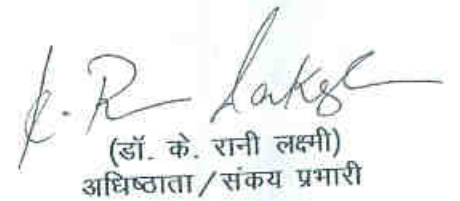 K. R Laksh
(डॉ. के. रानी लक्ष्मी)
अधिष्ठाता / संकय प्रभारी